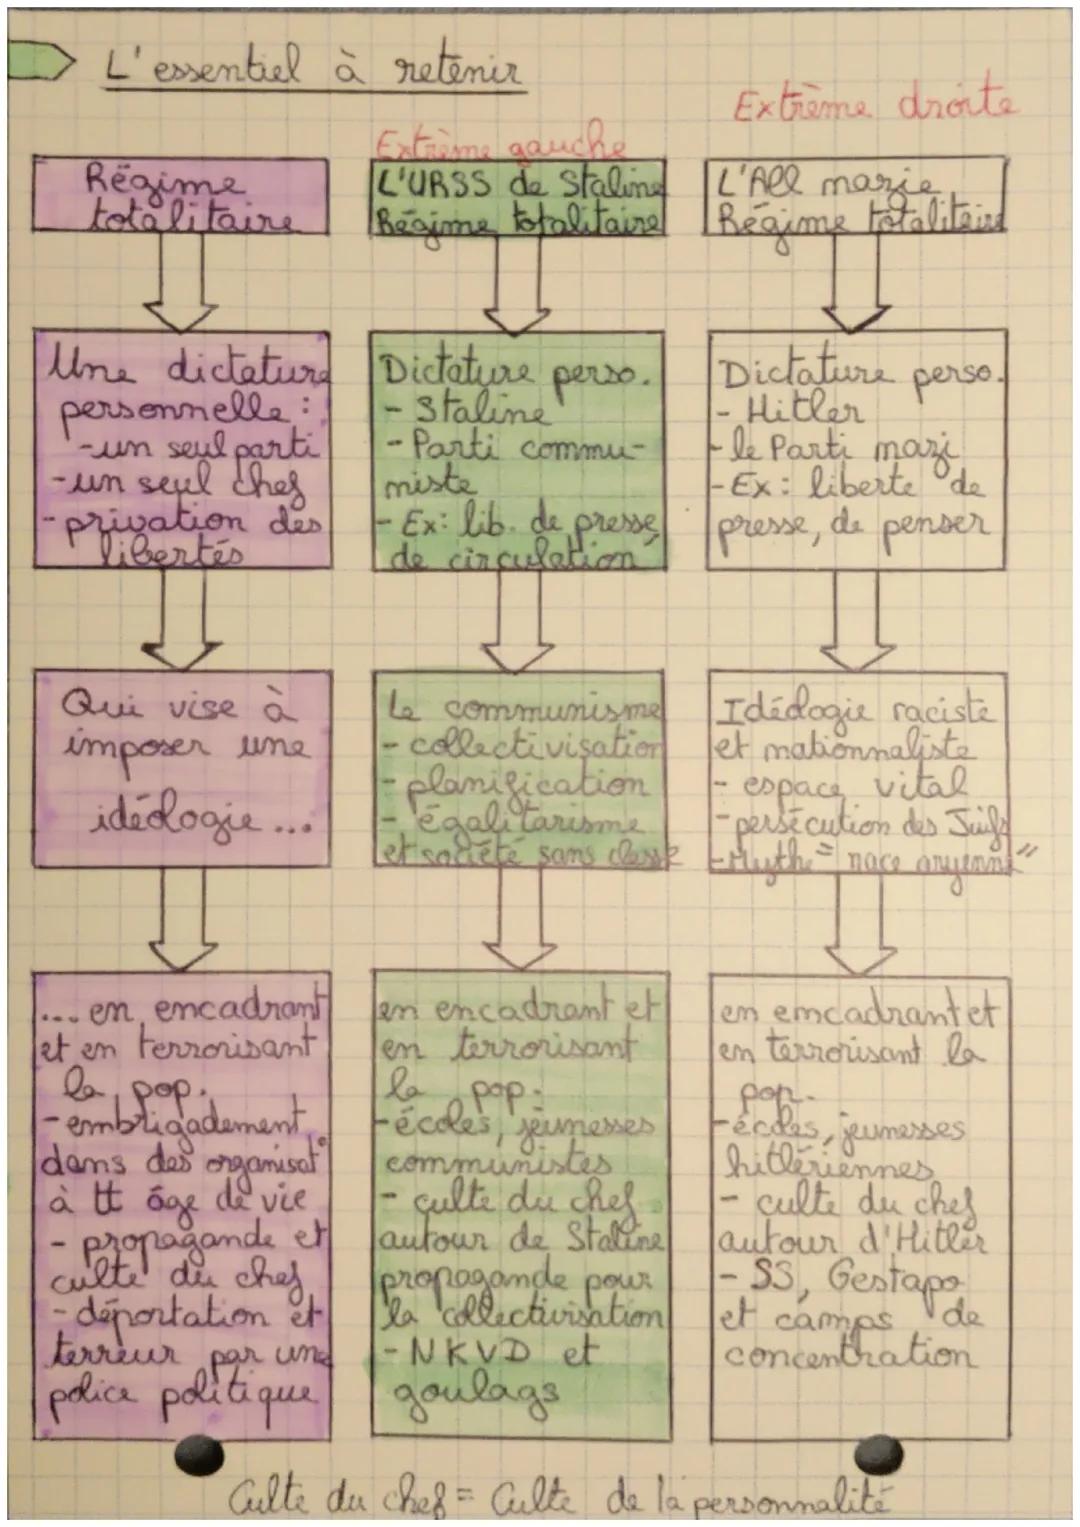 L'essentiel à retenir
Extrême gauche
Extrême droite
Régime
totalitaire
L'URSS de Staline
Régime totalitaire
L'All nazie
Régime totalitaire
Une dictature
personnelle :
-un seul parti
-un seul chef
-privation des
libertés
Dictature perso.
- Staline
- Parti commu-
niste
- Ex: lib. de presse,
de circulation
Dictature perso.
- Hitler
- le Parti nazi
- Ex: liberté de
presse, de penser
Qui vise à
imposer une
idéologie...
Le communisme
- collectivisation
- planification
- égalitarisme
et société sans classe
Idéologie raciste
et nationnaliste
- espace vital
- persécution des Juifs
- Mythe "race aryenne"
... en encadrant
et en terrorisant
la pop.
- embrigadement
dans des organisat°
à tt âge de vie
- propagande et
culte du chef
- déportation et
terreur par une
police politique
en encadrant et
en terrorisant
la pop.
- écoles, jeunesses
communistes
- culte du chef
autour de Staline
propagande pour
la collectivisation
- NKVD et
goulags
en encadrant et
en terrorisant la
pop.
- écoles, jeunesses
hitlériennes
- culte du chef
autour d'Hitler
- SS, Gestapo
et camps de
concentration
Culte du chef = Culte de la personnalité